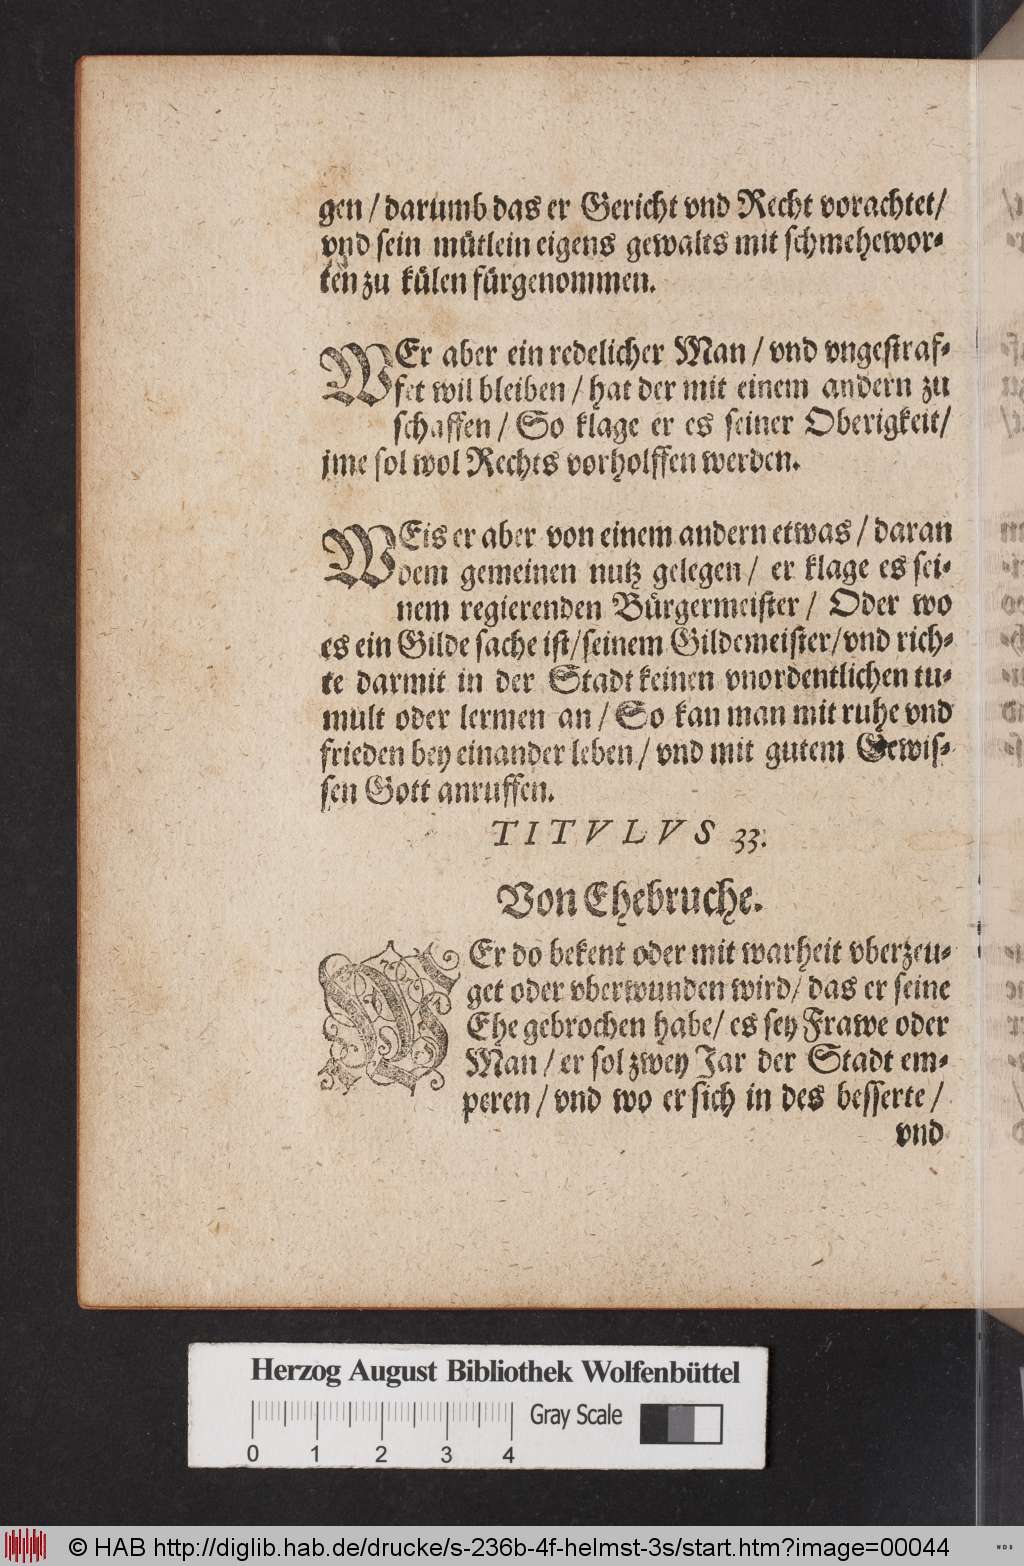 gen / darumb das er Gericht vnd Recht vorachtet/
vnd sein mütlein eigens gewalts mit schmehewor⸗
ten zu külen fürgenommen.
WEr aber ein redelicher Man / vnd vngestraf⸗
fet wil bleiben / hat der mit einem andern zu
schaffen / So klage er es seiner Oberigkeit/
jme sol wol Rechts vorholffen werden.
WEis er aber von einem andern etwas / daran
dem gemeinen nutz gelegen / er klage es sei⸗
nem regierenden Bürgermeister / Oder wo
es ein Gilde sache ist/seinem Gildemeister/vnd rich⸗
te darmit in der Stadt keinen vnordentlichen tu⸗
mult oder lermen an / So kan man mit ruhe vnd
frieden bey einander leben / vnd mit gutem Gewis⸗
sen Gott anruffen.
TITVLVS 33.
Von Ehebruche.
WEr do bekent oder mit warheit vberzeu⸗
get oder vberwunden wird/ das er seine
Ehe gebrochen habe/ es sey Frawe oder
Man / er sol zwey Jar der Stadt em⸗
peren / vnd wo er sich in des besserte /
vnd
Herzog August Bibliothek Wolfenbüttel
Gray Scale
0 1 2 3 4
© HAB http://diglib.hab.de/drucke/s-236b-4f-helmst-3s/start.htm?image=00044